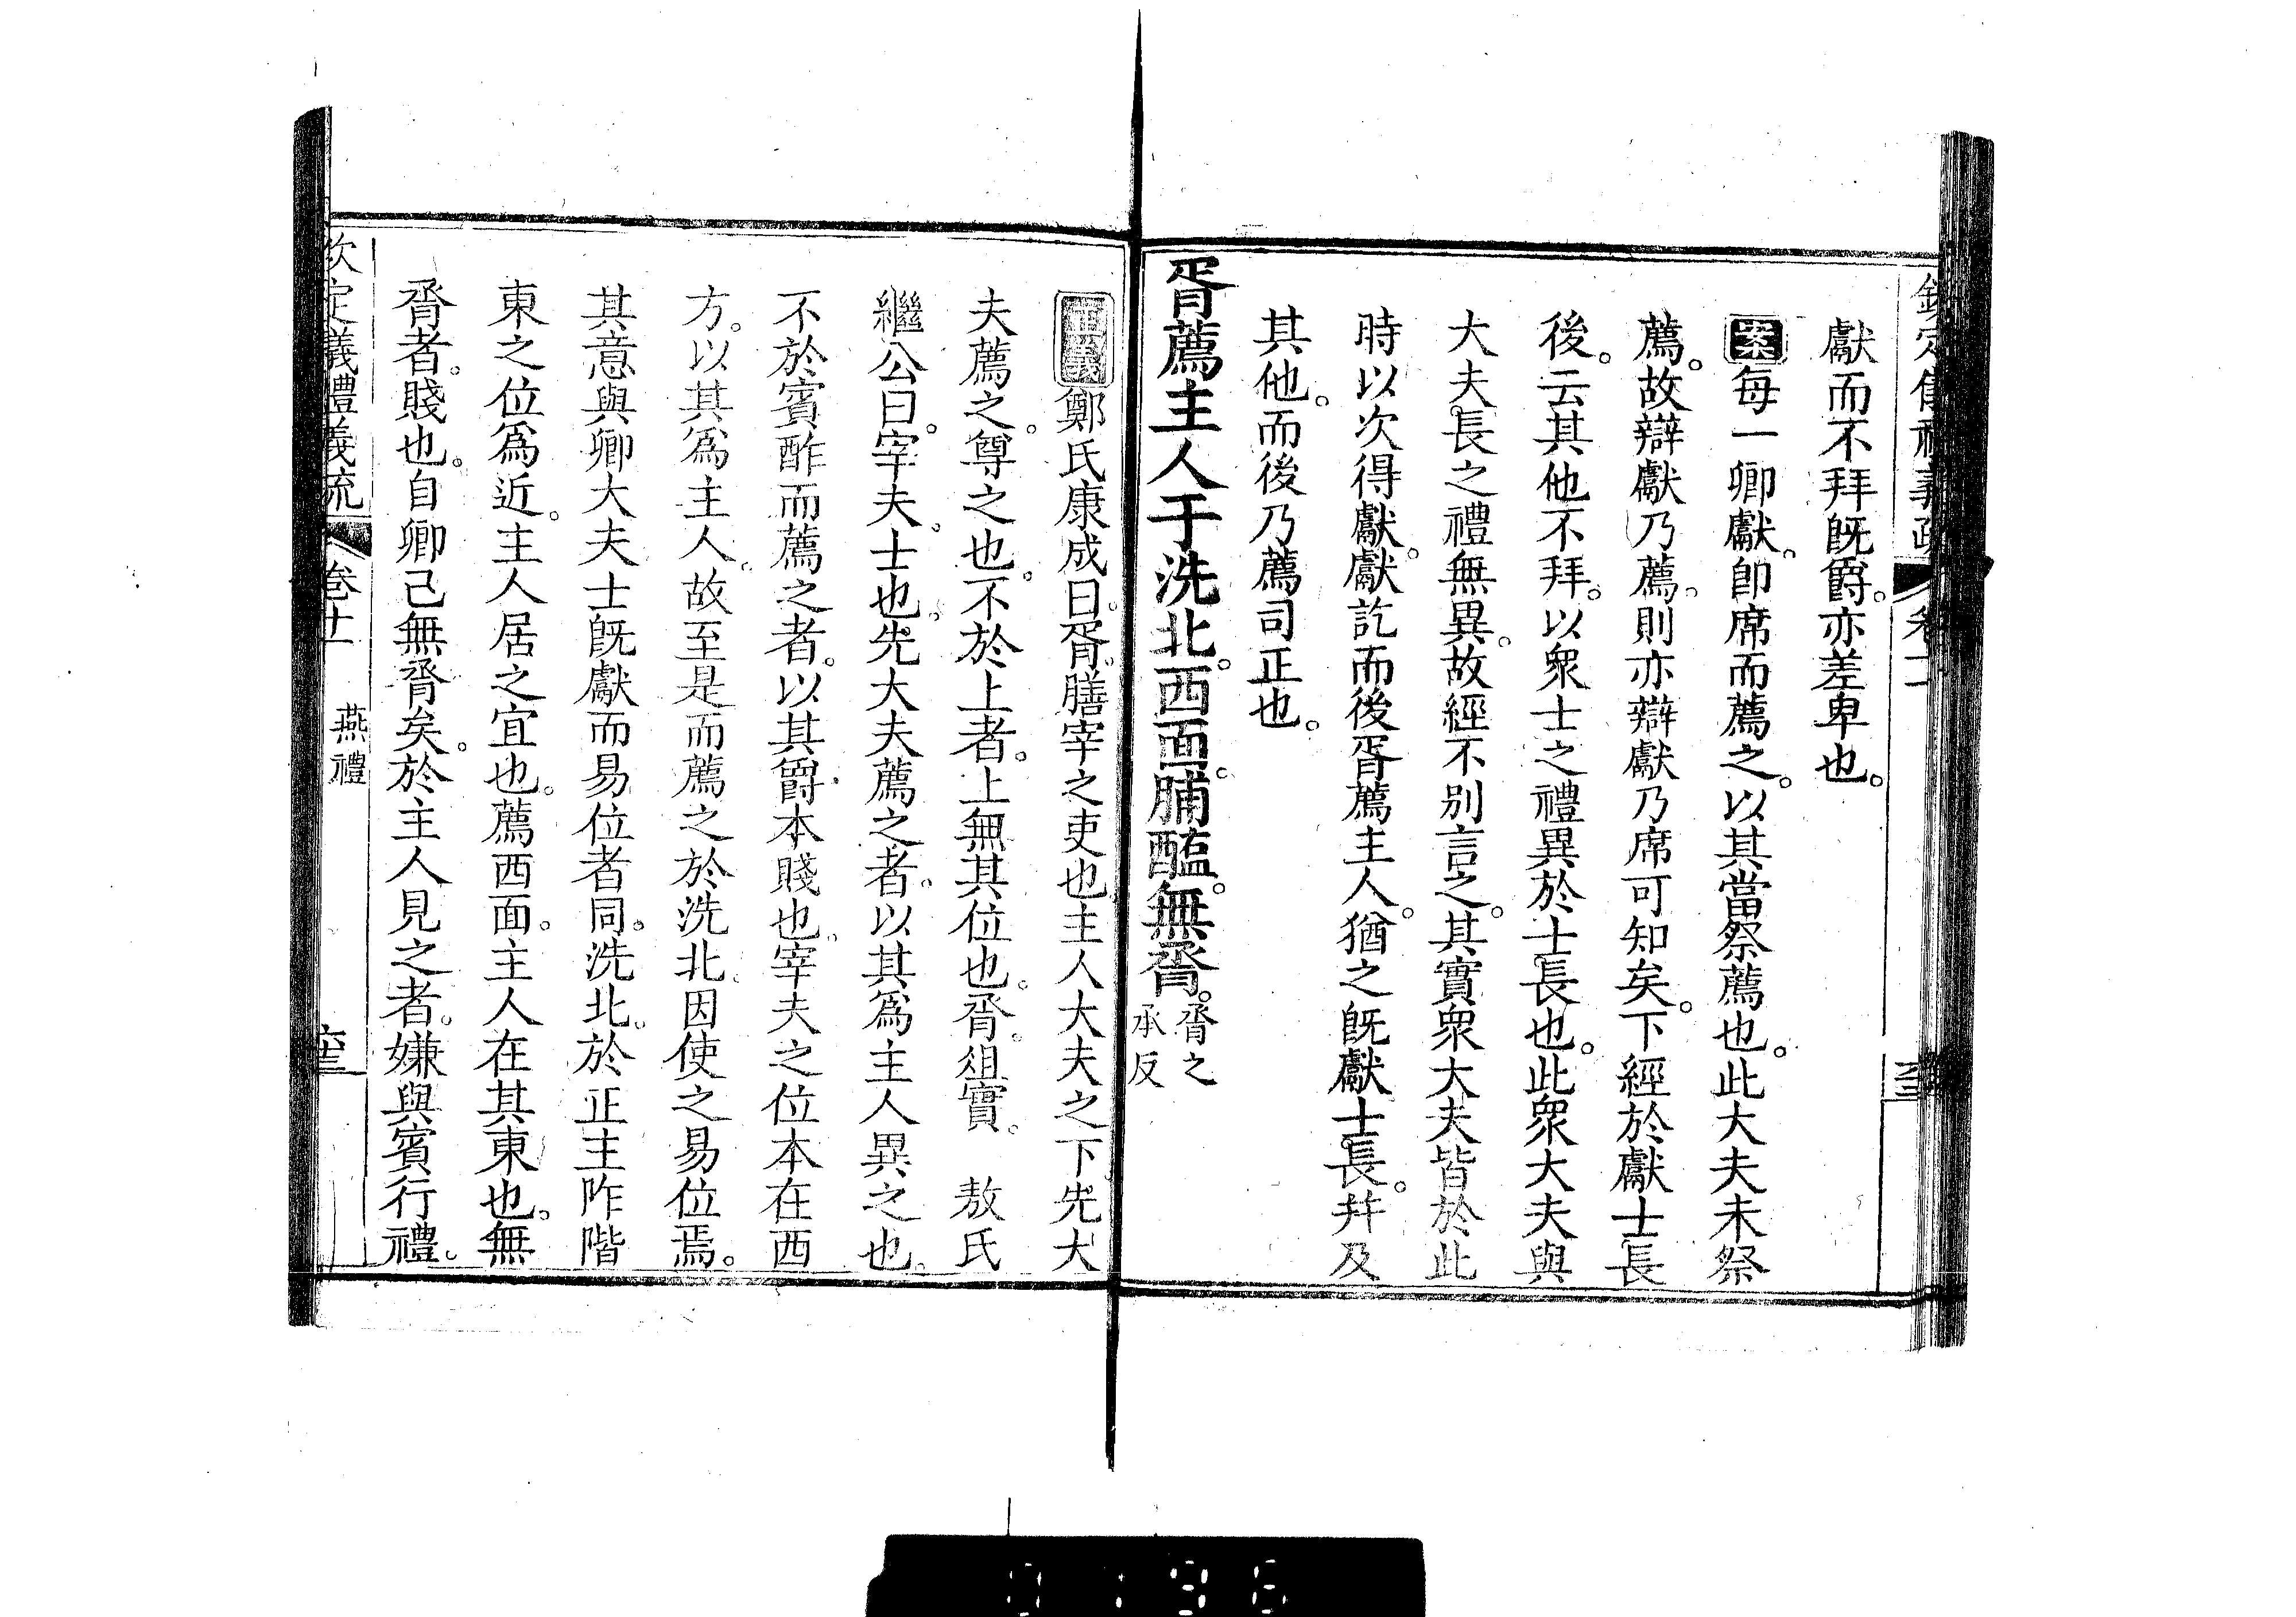 獻而不拜旣爵。亦差卑也。
案每一卿獻。卽席而薦之。以其當祭薦也。此大夫未祭
薦。故辯獻乃薦。則亦辯獻乃席可知矣。下經於獻士長
後。云其他不拜。以衆士之禮異於士長也。此衆大夫與
大夫長之禮無異。故經不別言之。其實衆大夫皆於此
時以次得獻。獻訖而後胥薦主人。猶之旣獻士長。幷及
其他。而後乃薦司正也。
胥薦主人于洗北。西面。脯醢。無脀。脀之
承反
正義鄭氏康成曰。胥。膳宰之吏也。主人大夫之下。先大
夫薦之。尊之也。不於上者。上無其位也。脀。俎實。 敖氏
繼公曰。宰夫。士也。先大夫薦之者。以其爲主人異之也。
不於賓酢而薦之者。以其爵本賤也。宰夫之位本在西
方。以其爲主人。故至是而薦之於洗北。因使之易位焉。
其意與卿大夫士旣獻而易位者同。洗北。於正主阼階
東之位爲近。主人居之宜也。薦西面。主人在其東也。無
脀者。賤也。自卿己無脀矣。於主人見之者。嫌與賓行禮。
欽定儀禮義疏 卷十一 燕禮